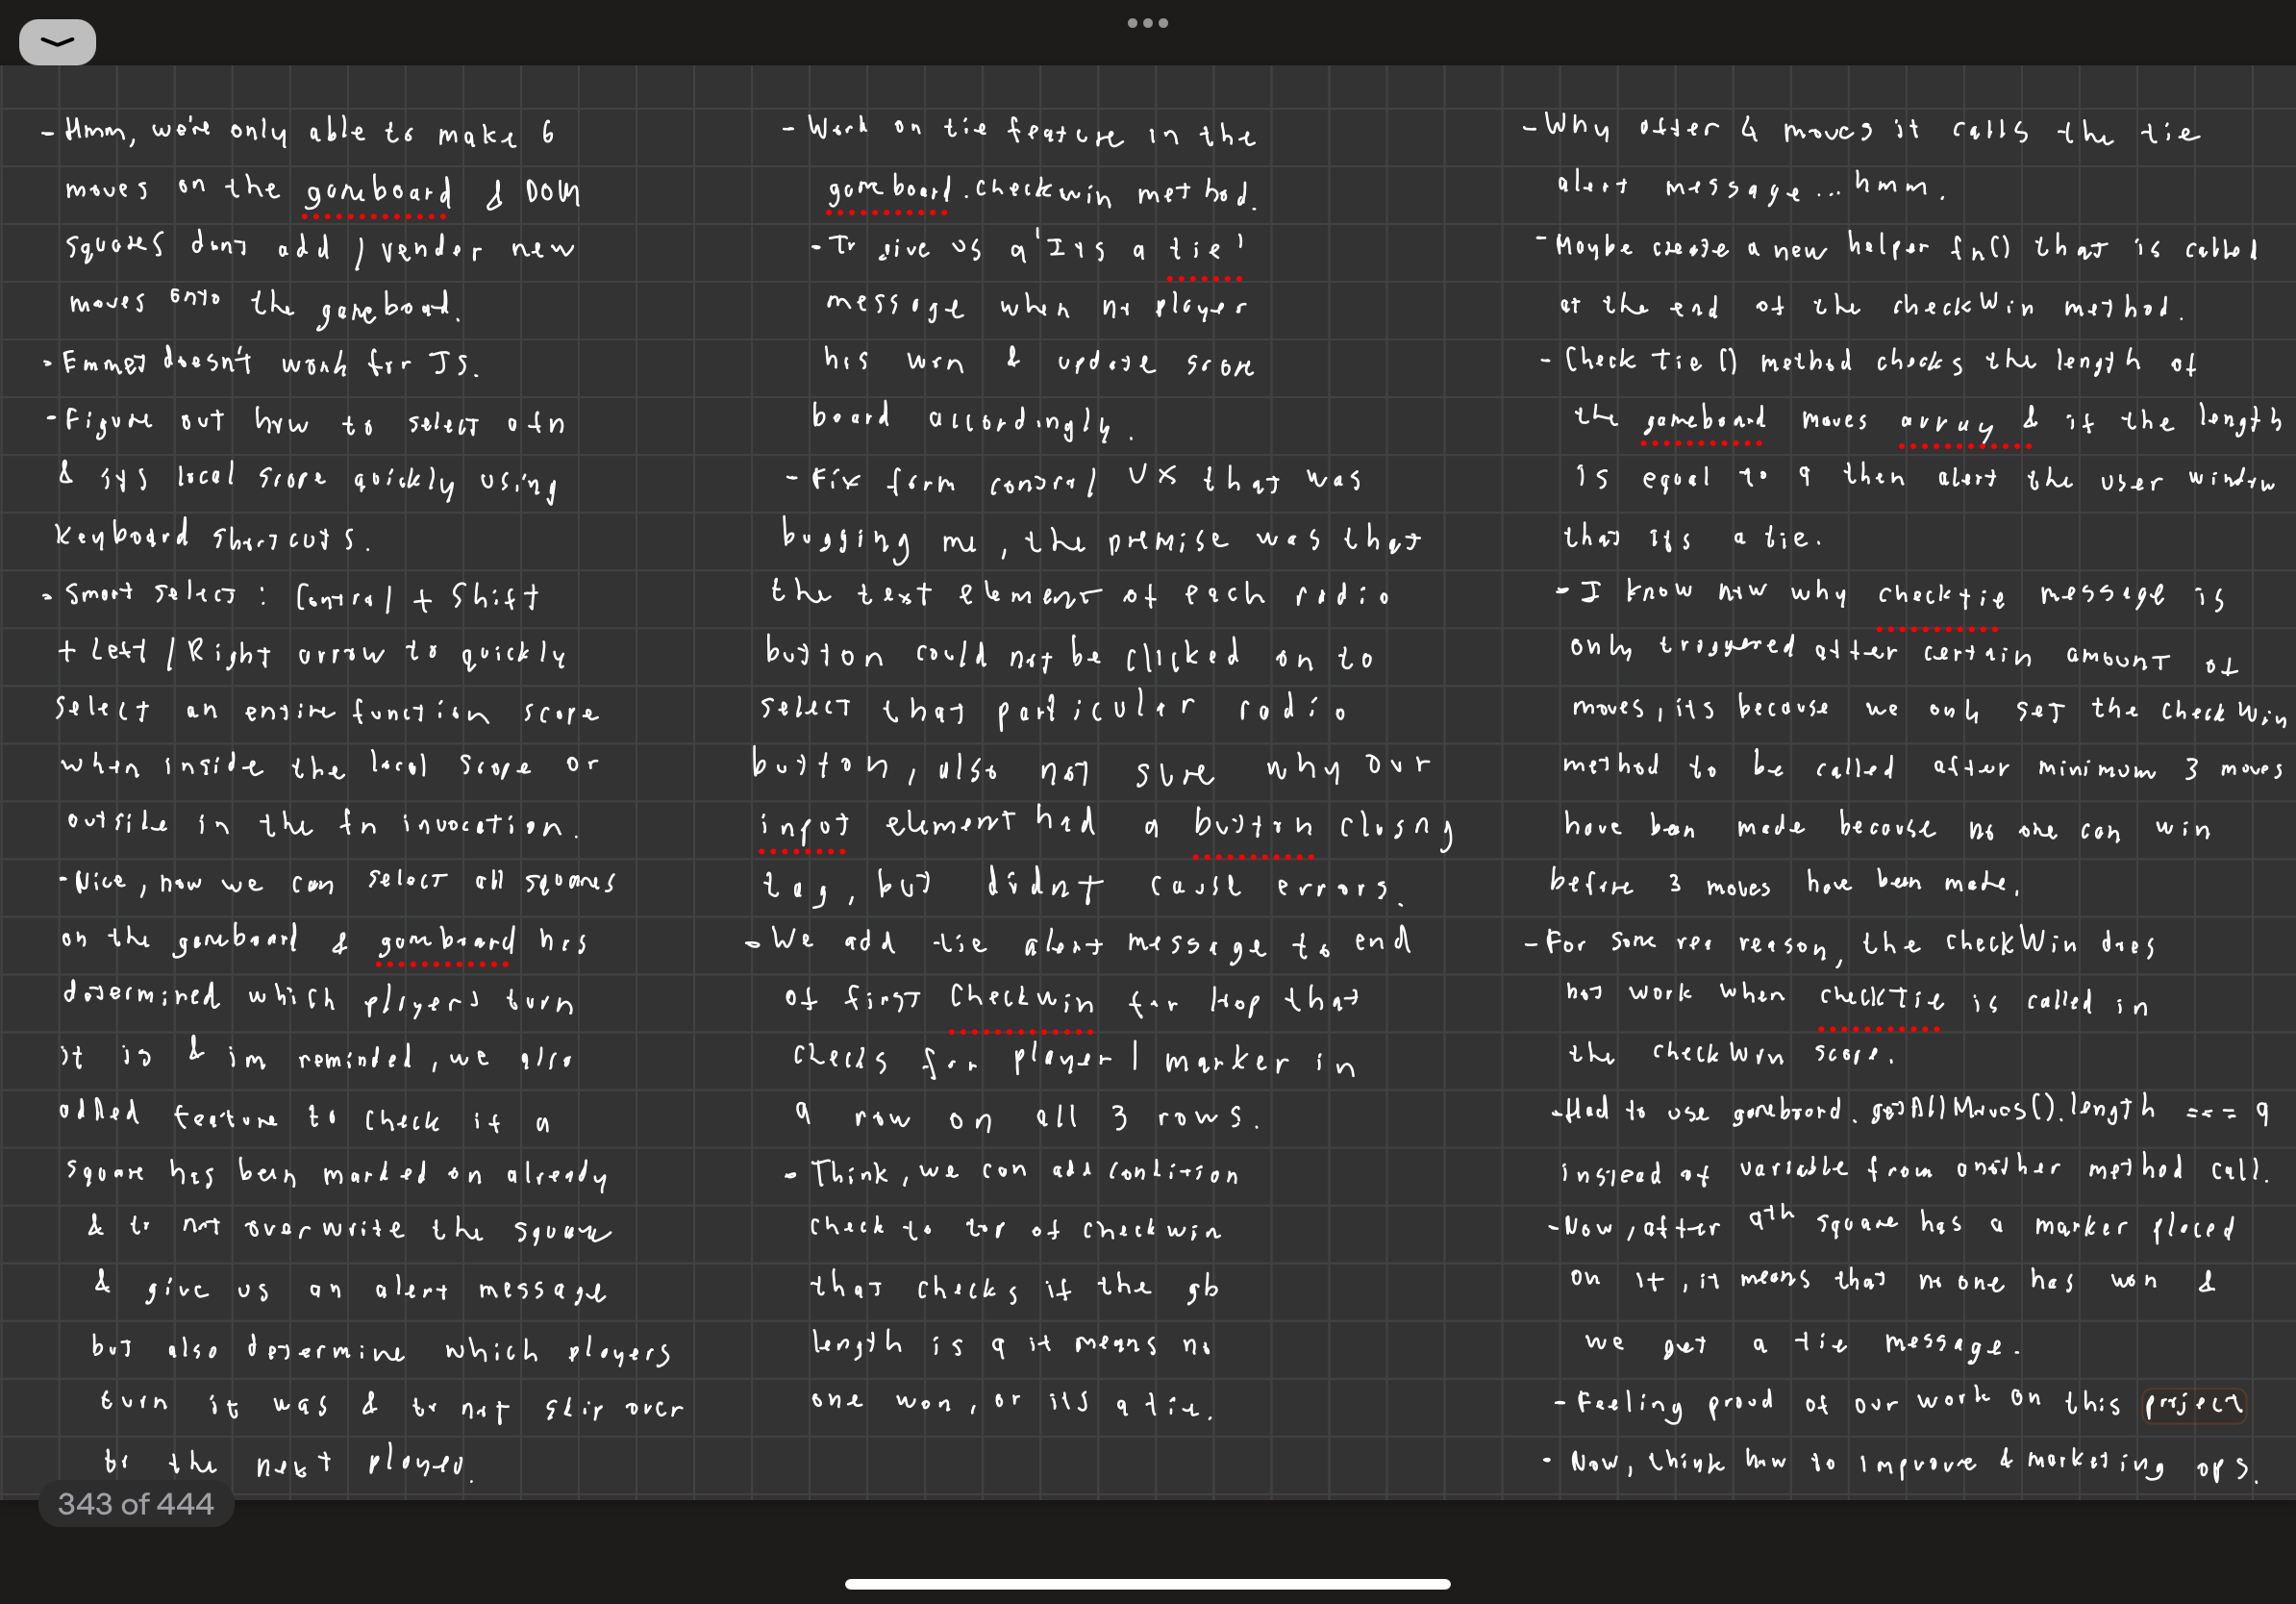 - Hmm, we're only able to make 6
moves on the gameboard & DOM
squares dont add / render new
moves onto the gameboard.
- Emmet doesn't work for JS.
- Figure out how to select a fn
& its local scope quickly using
keyboard shortcuts.
- Smart select: Control + Shift
+ Left / Right arrow to quickly
select an entire function scope
when inside the local scope or
outside in the fn invocation.
- Nice, now we can select all squares
on the gameboard & gameboard has
determined which players turn
it is & im reminded, we also
added feature to check if a
square has been marked on already
& to not overwrite the square
& give us an alert message
but also determine which players
turn it was & to not skip over
to the next player.
- Work on tie feature in the
gameboard.checkwin method.
- To give us a 'Its a tie'
message when no player
has won & update score
board accordingly.
- Fix form control UX that was
bugging me, the premise was that
the text element of each radio
button could not be clicked on to
select that particular radio
button, also not sure why our
input element had a button closng
tag, but didnt cause errors.
- We add tie alert message to end
of first checkwin for loop that
checks for player 1 marker in
a row on all 3 rows.
- Think, we can add condition
check to top of checkwin
that checks if the gb
length is 9 it means no
one won, or its a tie.
- Why after 4 moves it calls the tie
alert message... hmm.
- Maybe create a new helper fn() that is called
at the end of the checkWin method.
- Check Tie () method checks the length of
the gameboard moves array & if the length
is equal to 9 then alert the user window
that its a tie.
- I know now why checktie message is
only triggered after certain amount of
moves, its because we only set the checkWin
method to be called after minimum 3 moves
have been made because no one can win
before 3 moves have been made.
- For some rea reason, the checkWin does
not work when checkTie is called in
the checkWin scope.
- Had to use gameboard.getAllMoves().length === 9
instead of variable from another method call.
- Now, after 9th square has a marker placed
on it, it means that no one has won &
we get a tie message.
- Feeling proud of our work on this project
- Now, think how to improve & marketing ops.
343 of 444